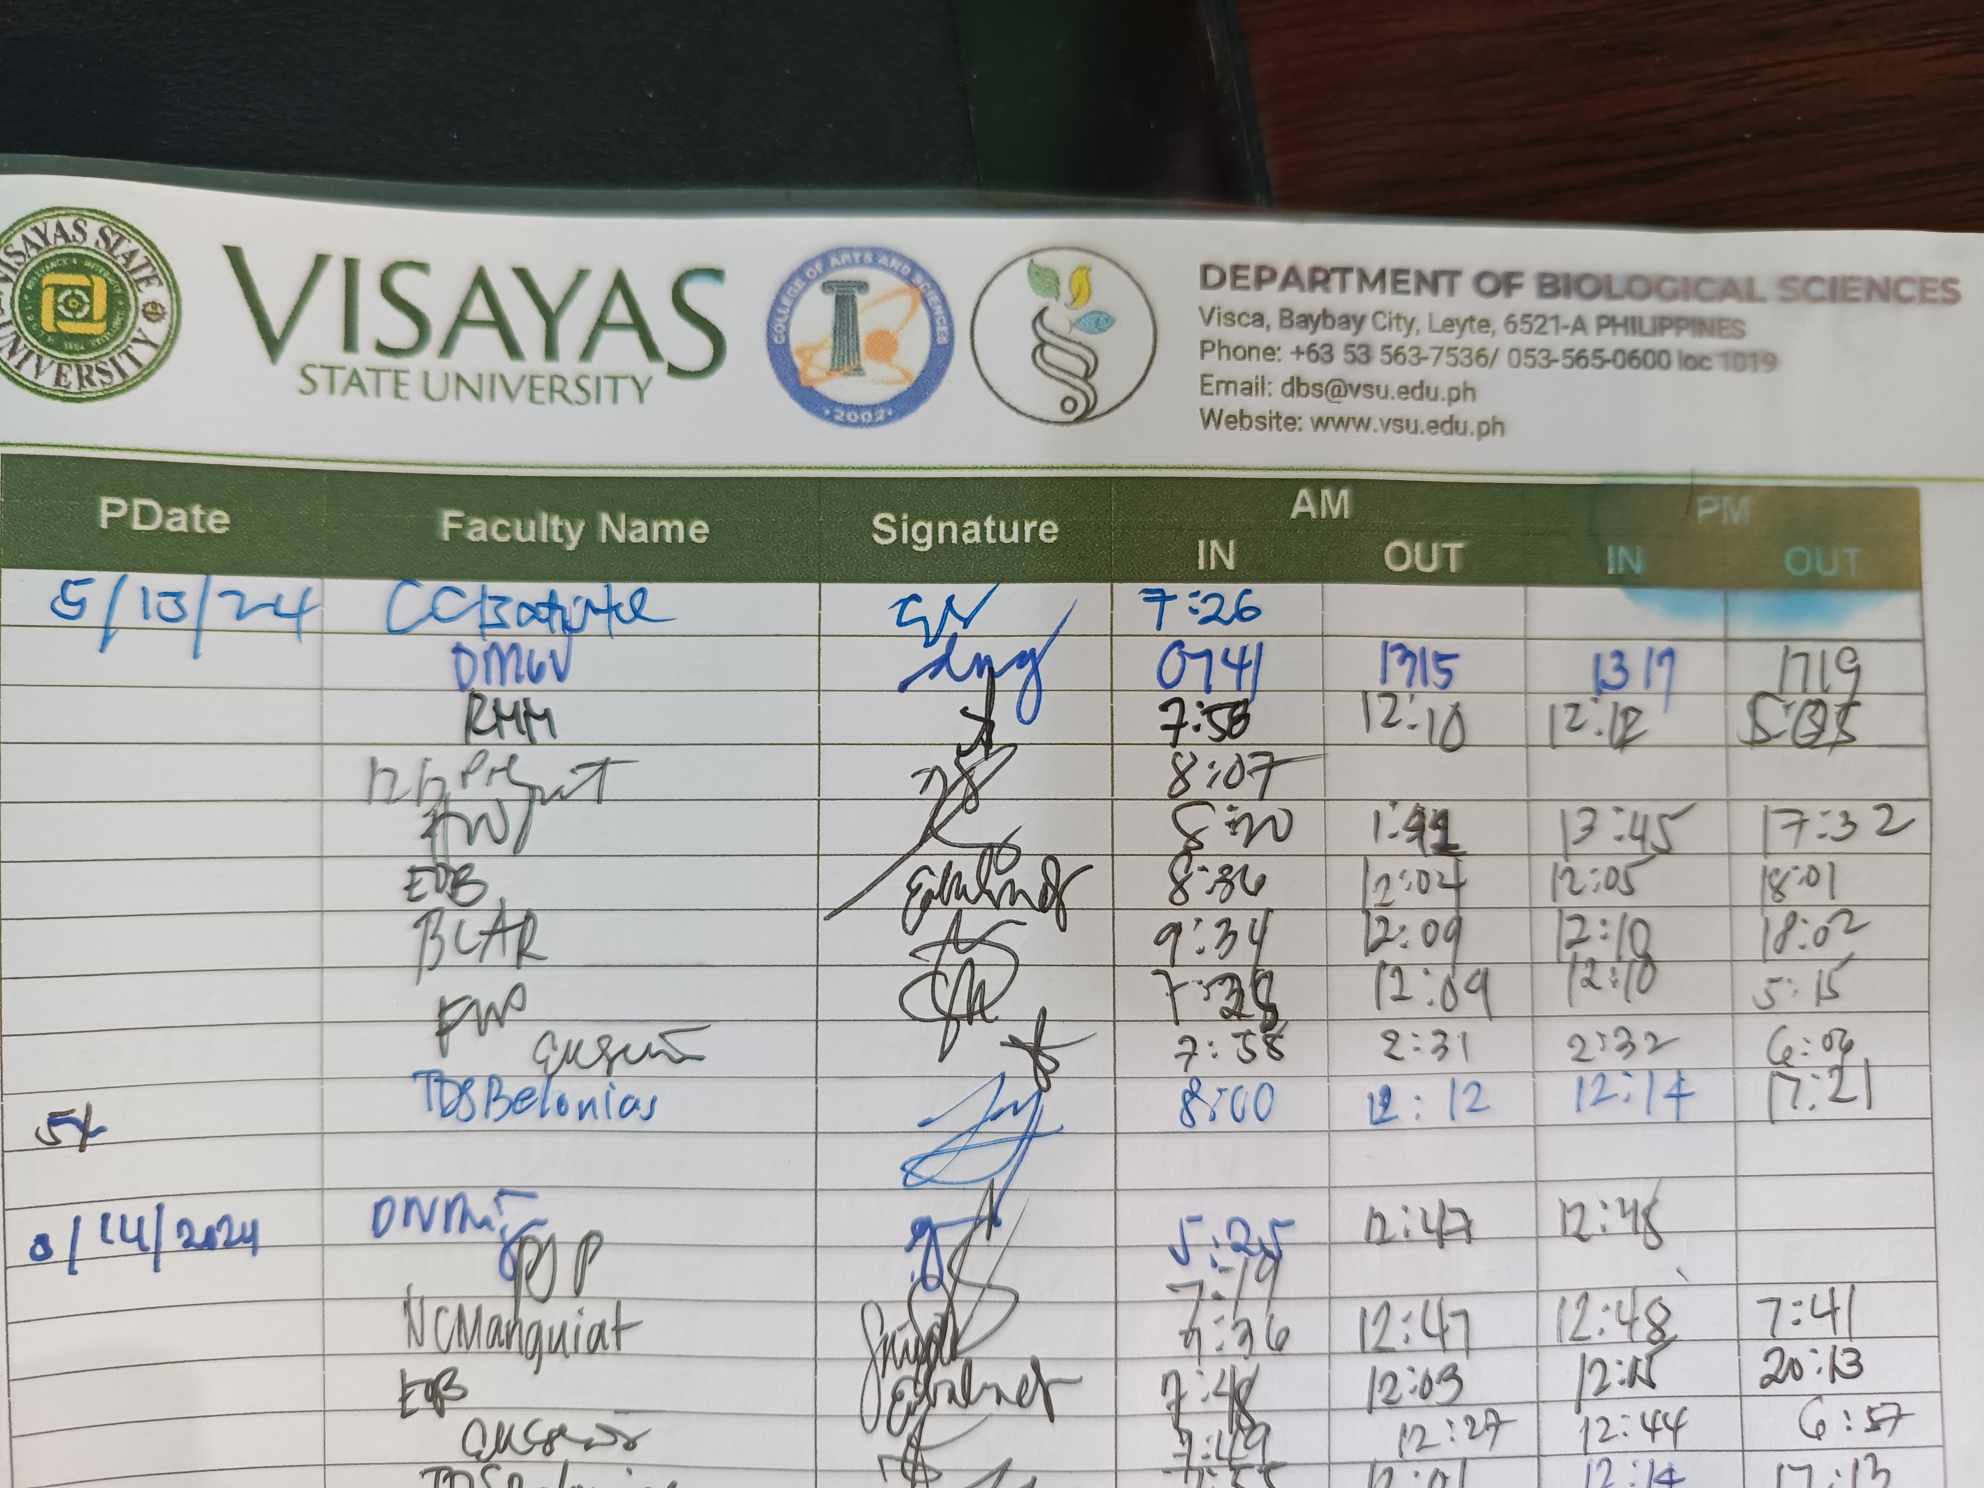 VISAYAS STATE UNIVERSITY
VISAYAS
STATE UNIVERSITY
COLLEGE OF ARTS AND SCIENCES
2002
DEPARTMENT OF BIOLOGICAL SCIENCES
Visca, Baybay City, Leyte, 6521-A PHILIPPINES
Phone: +63 53 563-7536/ 053-565-0600 loc 1019
Email: dbs@vsu.edu.ph
Website: www.vsu.edu.ph
PDate Faculty Name Signature AM PM
IN OUT IN OUT
5/13/24 7:26
DMGV 0741 1315 1317 1719
RMM 7:58 12:10 12:12 5:05
8:07
8:20 13:45 17:32
EQB 8:36 12:04 12:05 18:01
BCAR 9:34 12:09 12:10 18:02
12:09 12:10 5:15
7:58 2:31 2:32 6:06
TDSBelonias 8:00 12:12 12:14 17:21
/14/2024 5:25 12:47 12:48
PJP 7:19
NCManguiat 7:36 12:47 12:48 7:41
EQB 7:48 12:03 12:15 20:13
7:49 12:27 12:44 6:57
TDSBelonias 7:55 12:01 12:14 17:13